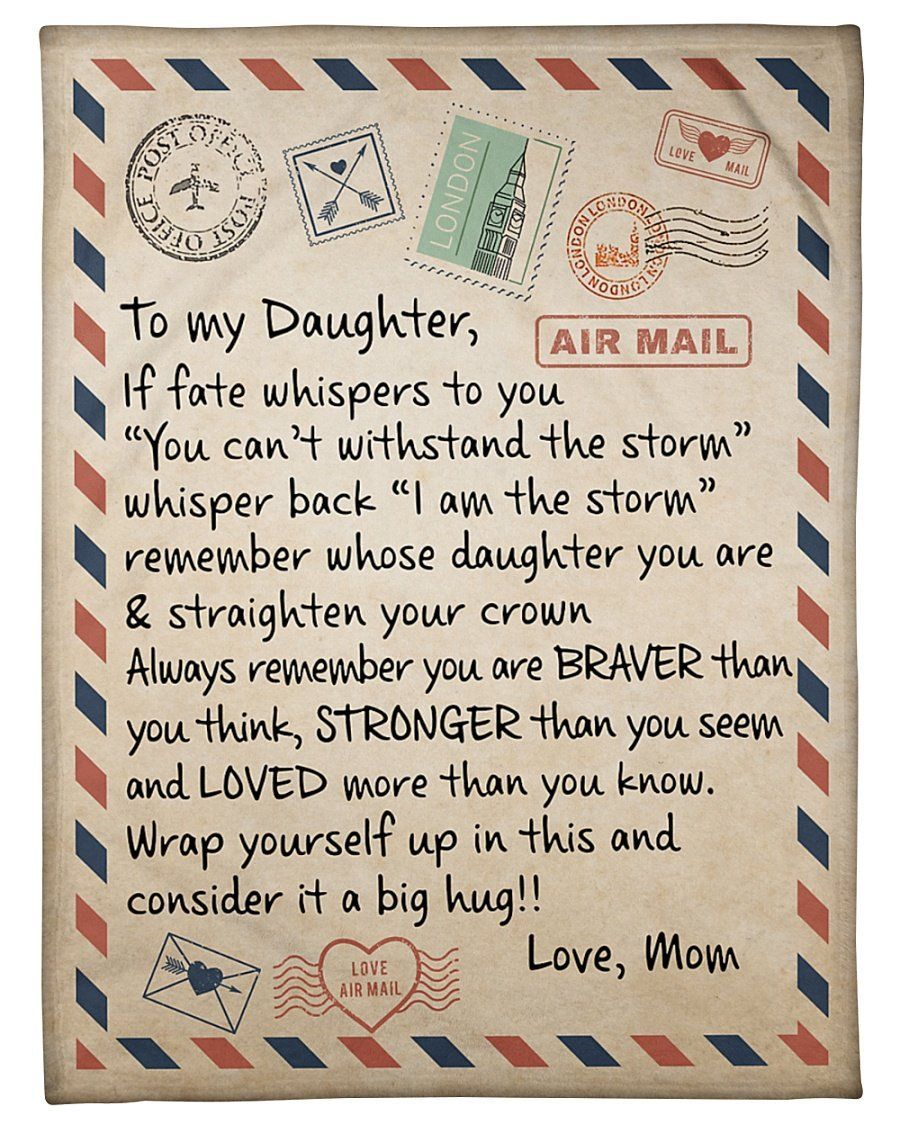 POST OFFICE POST OFFICE
LONDON
LOVE MAIL
LONDON LONDON LONDON LONDON
AIR MAIL
To my Daughter,
If fate whispers to you
“You can’t withstand the storm”
whisper back “I am the storm”
remember whose daughter you are
& straighten your crown
Always remember you are BRAVER than
you think, STRONGER than you seem
and LOVED more than you know.
Wrap yourself up in this and
consider it a big hug!!
Love, Mom
LOVE
AIR MAIL